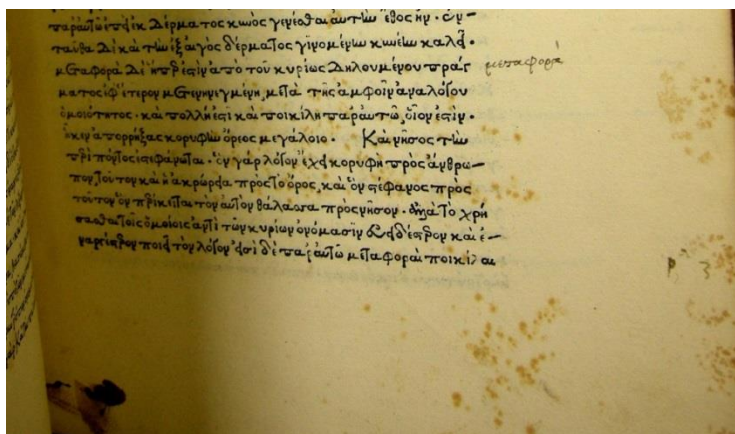 παρ' αὐτῷ ἐπεὶ ἐκ δέρματος κυνὸς γενέσθαι αὐτὴν ἔθος ἦν. ἐν-
ταῦθα δὲ καὶ τὴν ἐξ αἰγὸς δέρματος γινομένην κυνέην καλεῖ.
μεταφορὰ δὲ ἥπερ ἐστὶν ἀπὸ τοῦ κυρίως δηλουμένου πράγ
ματος ἐφ' ἕτερον μετενηνεγμένη μετὰ τῆς ἀμφοῖν ἀναλόγου
ὁμοιότητος. καὶ πολλὴ ἐστὶ καὶ ποικίλη παρ' αὐτῷ, οἷον ἐστὶν.
ἧκεν ἀπορρήξας κορυφὴν ὄρεος μεγάλοιο. Καὶ νῆσος τὴν
περὶ πόντος ἐστεφάνωται. ὃν γὰρ λόγον ἔχει κορυφὴ πρὸς ἄνθρω-
πον, τοῦτον καὶ ἡ ἀκρώρεια πρὸς τὸ ὄρος, καὶ ὃν στέφανος πρὸς
τοῦτον ὃν περίκειται τὸν αὐτὸν θάλασσα πρὸς νῆσον. τὸ χρῆ
σθαι τοῖς ὁμοίοις ἀντὶ τῶν κυρίων ὀνόμασιν καὶ ἐ-
ναργέστερον ποιεῖ τὸν λόγον εἰσὶ δὲ παρ' αὐτῷ μεταφοραὶ ποικίλαι
μεταφορὰ